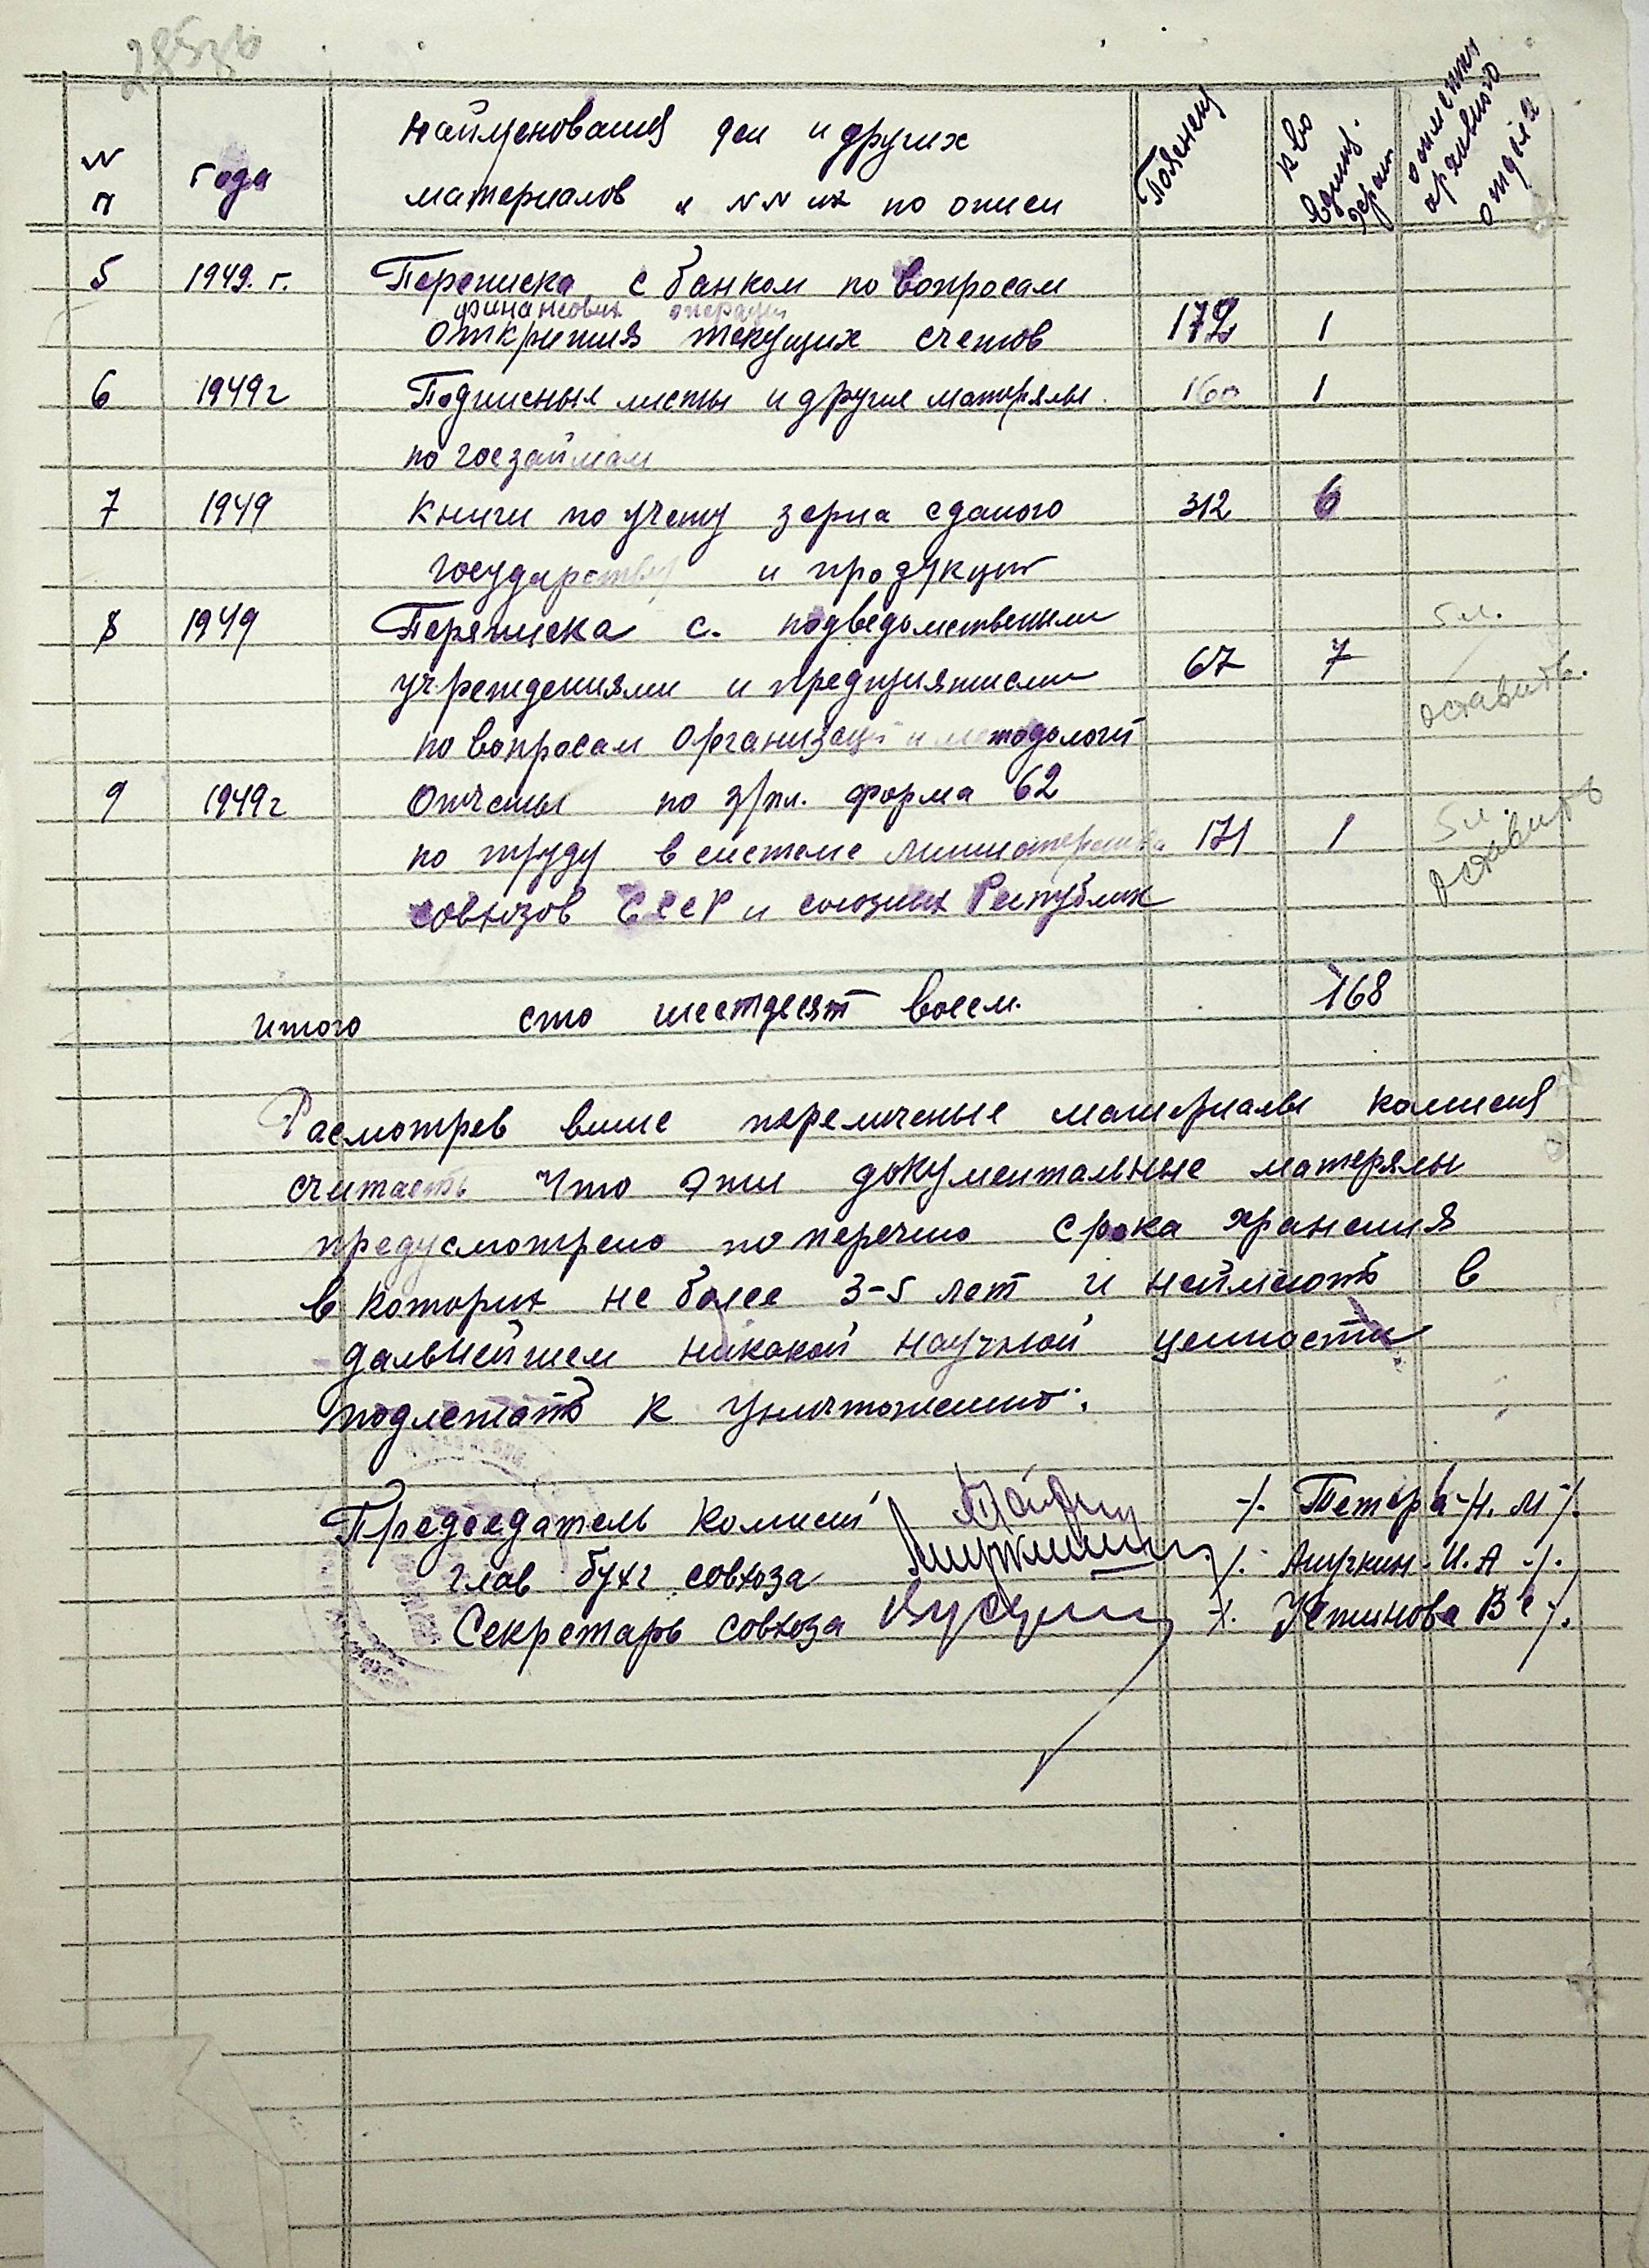 N
п
Года
Найменования дел и других
материалов и NN их по описи
К во
Единиц.
хран.
отметки
архивного
отдела
5 1949. г. Переписка с банком по вопросам
финансовых операции
открития текущих счетов 172 1
6 1949 г Подписные листы и другие матерялы 160 1
по госзаймам
7 1949 Книги по учету зерна сданого 312 6
государству и продукции
8 1949 Переписка с. подведомственими
учреждениями и предприятиями 67 7
оставить.
по вопросам организаци и методологи
9 1949 г Отчеты по з/пл. форма 62
по труду в системе министерства 171 1
оставить
совхозов СССР и союзных Републик
итого сто шестдесят восем. 168
Расмотрев више перечиченые материалы комисия
считаеть что эти документальные матерялы
предусмотрено по перечню срока хранения
в которих не более 3-5 лет и неймеють в
дальнейшем никакой научной ценности
подлежать к уничтожению.
Председатель комисии Петерв Н. М
глав бухг совхоза Ануркин И. А
Секретарь совхоза Устинова В